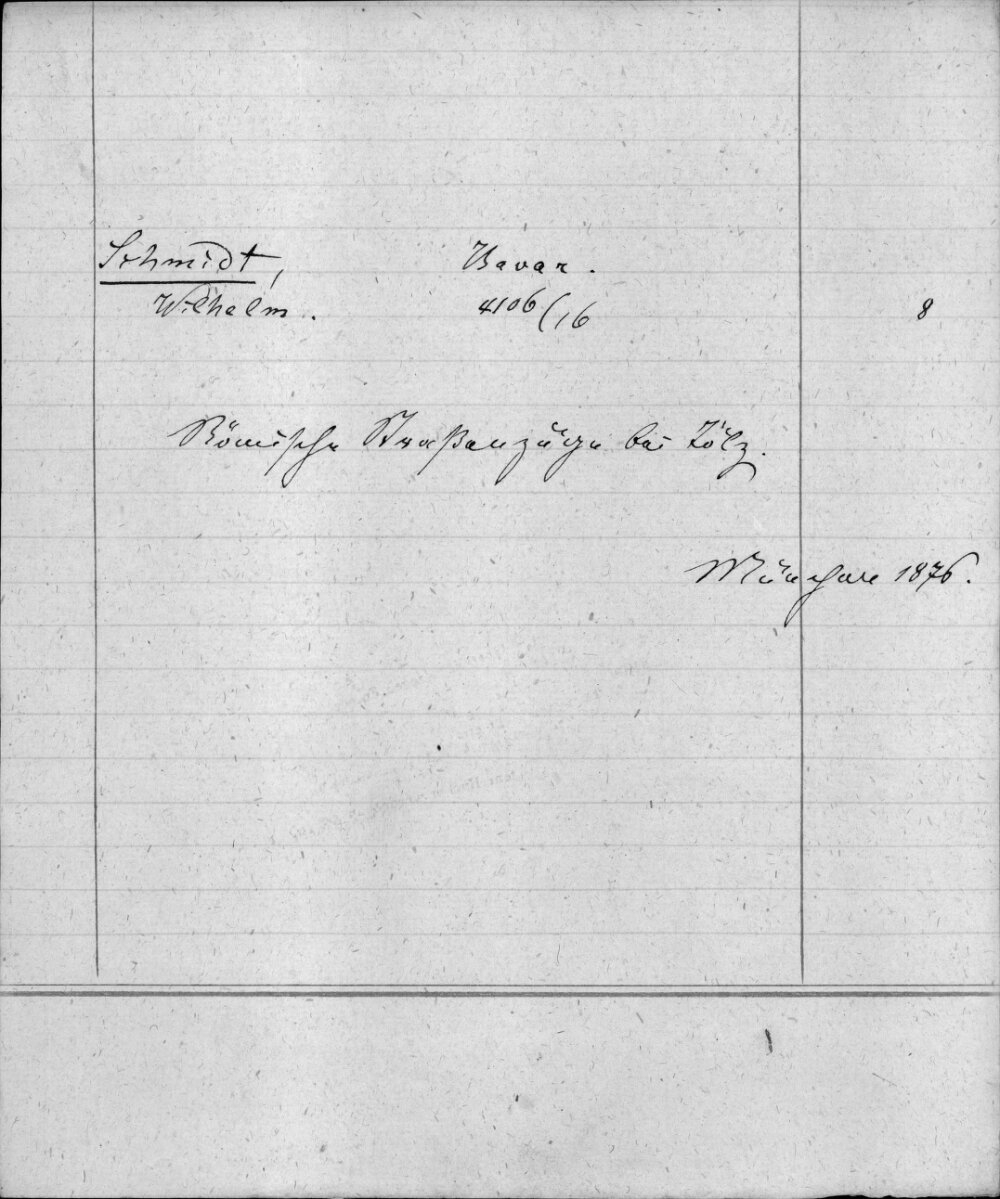 Schmidt, Bavar.
Wilhelm. 4106/16 8
Römische Straßenzüge bei Tölz.
München 1876.